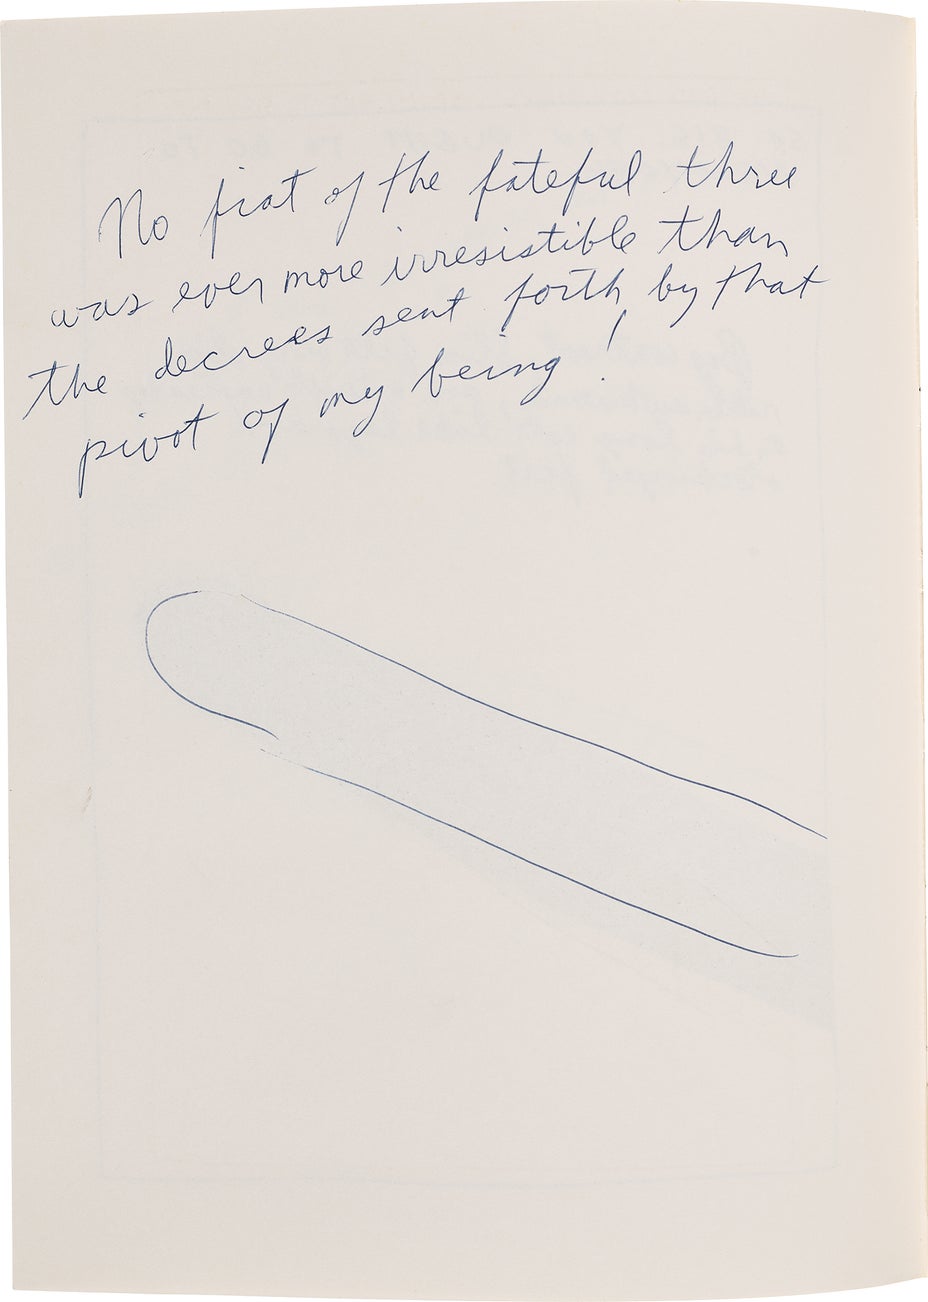 No fiat of the fateful three
was ever more irresistible than
the decrees sent forth by that
pivot of my being!